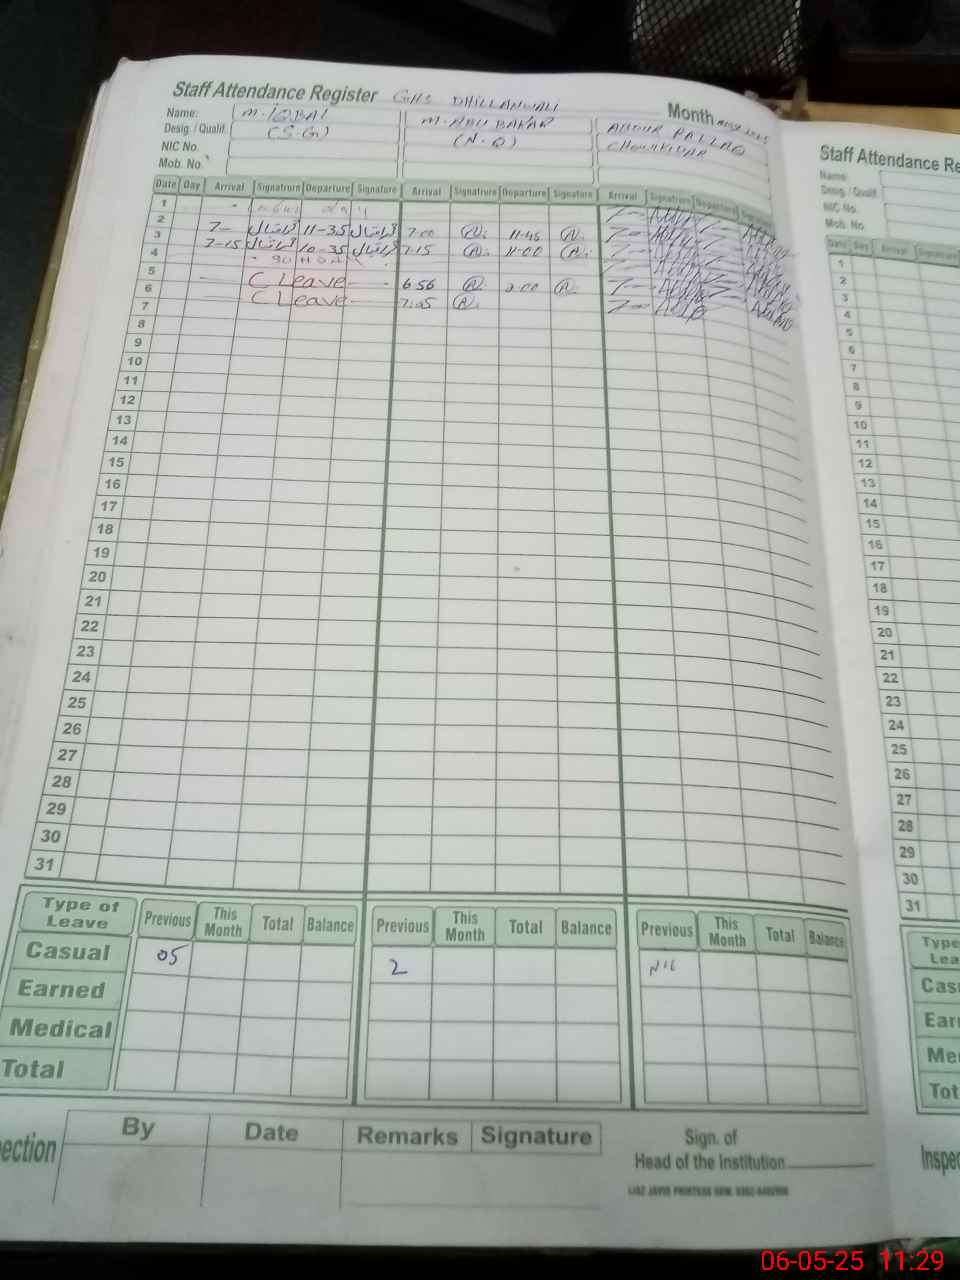 Staff Attendance Register GHS DHILLANWALI Month
Name: M. IQBAL M. ABU BAKAR
Desig. / Qualif. (S.G) (N.Q) CHOWKIDAR
NIC No.
Mob. No.
Date Day Arrival Signatrure Departure Signature Arrival Signatrure Departure Signature Arrival Signatrure Departure Signature
1 Labour Day
2 7- اقبال 11-35 اقبال 7:00 11-45 7-
3 7-15 اقبال 10-35 اقبال 7:15 11-00 7-
4 SUNDAY
5 C Leave 6 56 2:00 7-
6 C Leave 7:05 7-
7
8
9
10
11
12
13
14
15
16
17
18
19
20
21
22
23
24
25
26
27
28
29
30
31
Type of Leave Previous This Month Total Balance Previous This Month Total Balance Previous This Month Total Balance
Casual 05 2 Nil
Earned
Medical
Total
ection By Date Remarks Signature
Sign. of
Head of the Institution
Staff Attendance Re
Name:
Desig. / Qualif.
NIC No.
Mob. No.
Date Day Arrival Signatrure
1
2
3
4
5
6
7
8
9
10
11
12
13
14
15
16
17
18
19
20
21
22
23
24
25
26
27
28
29
30
31
Type
Lea
Cas
Ear
Me
Tot
Inspe
06-05-25 11:29